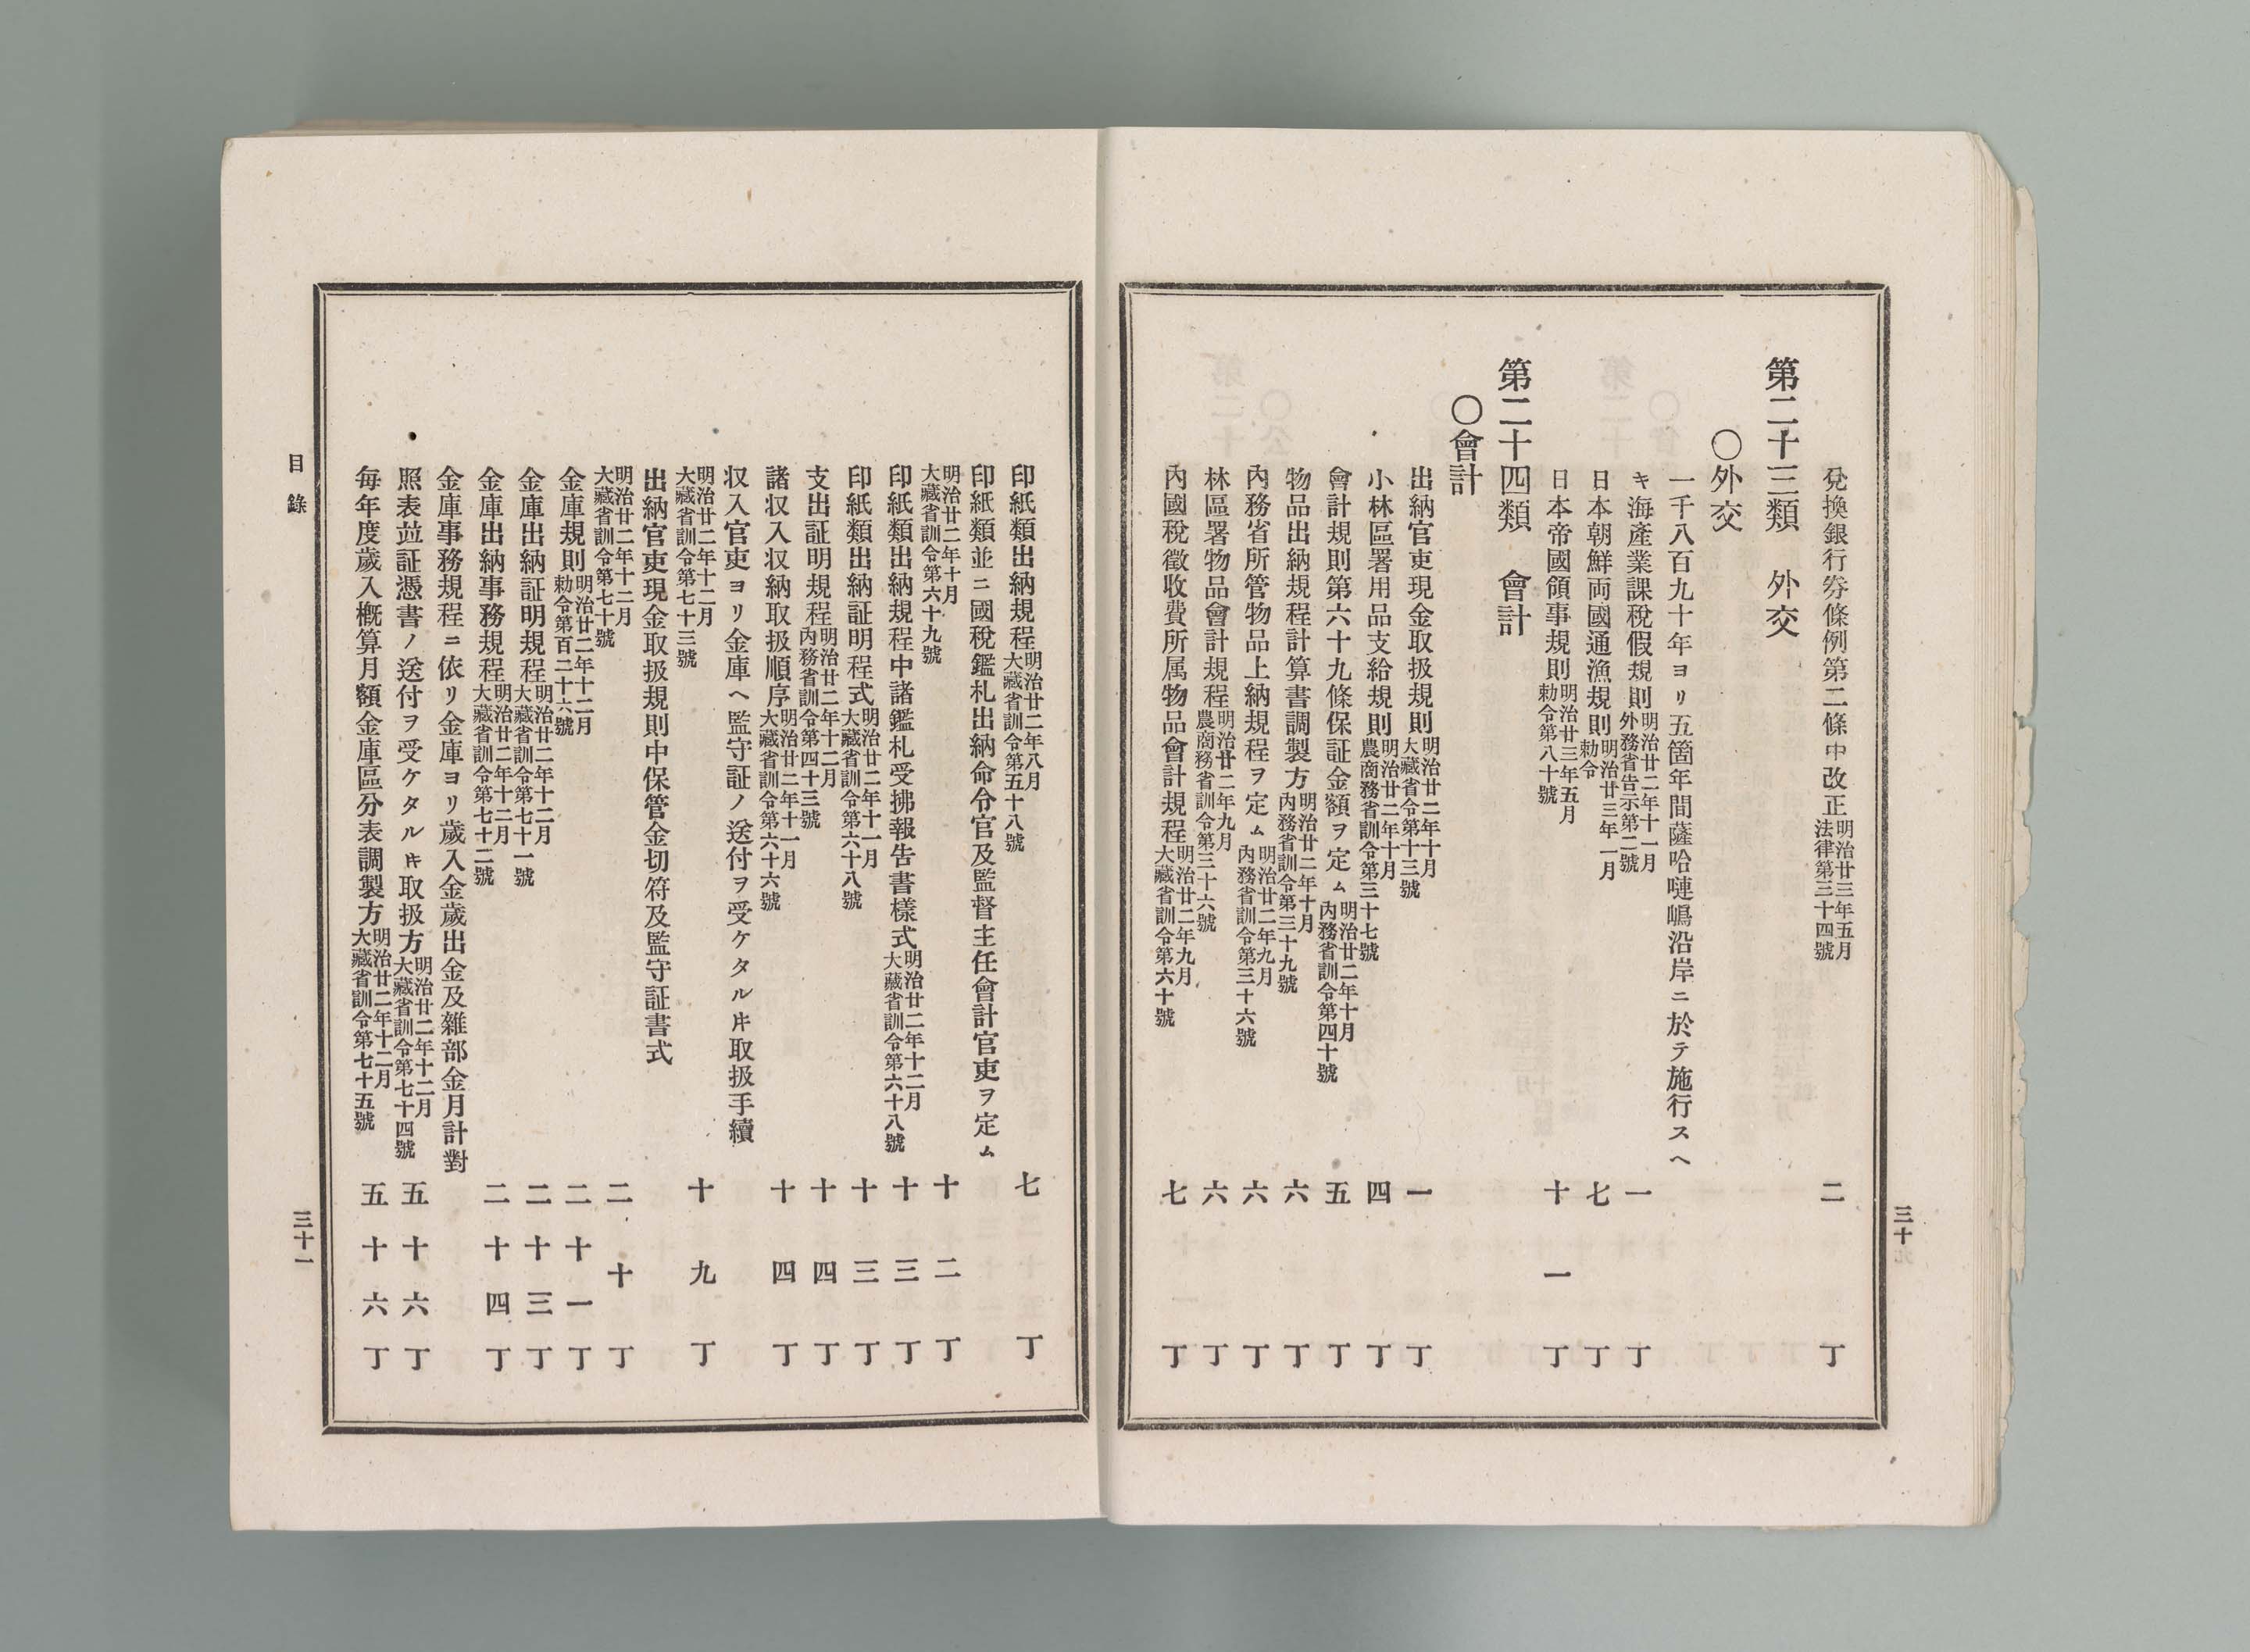 兌換銀行券條例第二條中改正明治廿三年五月法律第三十四號 二丁
第二十三類 外交
〇外交
一千八百九十年ヨリ五箇年間薩哈嗹嶋沿岸ニ於テ施行スヘ
キ海產業課稅假規則明治廿二年十一月外務省告示第二號 一丁
日本朝鮮両國通漁規則明治廿三年一月勅令 七丁
日本帝國領事規則明治廿三年五月勅令第八十號 十一丁
第二十四類 會計
〇會計
出納官吏現金取扱規則明治廿二年十月大藏省令第十三號 一丁
小林區署用品支給規則明治廿二年十月農商務省訓令第三十七號 四丁
會計規則第六十九條保証金額ヲ定ム明治廿二年十月內務省訓令第四十號 五丁
物品出納規程計算書調製方明治廿二年十月內務省訓令第三十九號 六丁
內務省所管物品上納規程ヲ定ム明治廿二年九月內務省訓令第三十六號 六丁
林區署物品會計規程明治廿二年九月農商務省訓令第三十六號 六丁
內國稅徵收費所属物品會計規程明治廿二年九月大藏省訓令第六十號 七丁
三十
印紙類出納規程明治廿二年八月大藏省訓令第五十八號 七丁
印紙類並ニ國稅鑑札出納命令官及監督主任會計官吏ヲ定ム
明治廿二年十月大藏省訓令第六十九號 十二丁
印紙類出納規程中諸鑑札受拂報告書樣式明治廿二年十二月大藏省訓令第六十八號 十三丁
印紙類出納証明程式明治廿二年十一月大藏省訓令第六十八號 十三丁
支出証明規程明治廿二年十二月內務省訓令第四十三號 十四丁
諸収入収納取扱順序明治廿二年十一月大藏省訓令第六十六號 十四丁
収入官吏ヨリ金庫ヘ監守証ノ送付ヲ受ケタルキ取扱手續
明治廿二年十二月大藏省訓令第七十三號 十九丁
出納官吏現金取扱規則中保管金切符及監守証書式
明治廿二年十二月大藏省訓令第七十號 二十丁
金庫規則明治廿二年十二月勅令第百二十六號 二十一丁
金庫出納証明規程明治廿二年十二月大藏省訓令第七十一號 二十三丁
金庫出納事務規程明治廿二年十二月大藏省訓令第七十二號 二十四丁
金庫事務規程ニ依リ金庫ヨリ歲入金歲出金及雜部金月計對
照表並証憑書ノ送付ヲ受ケタルキ取扱方明治廿二年十二月大藏省訓令第七十四號 五十六丁
每年度歲入概算月額金庫區分表調製方明治廿二年十二月大藏省訓令第七十五號 五十六丁
目錄
三十一